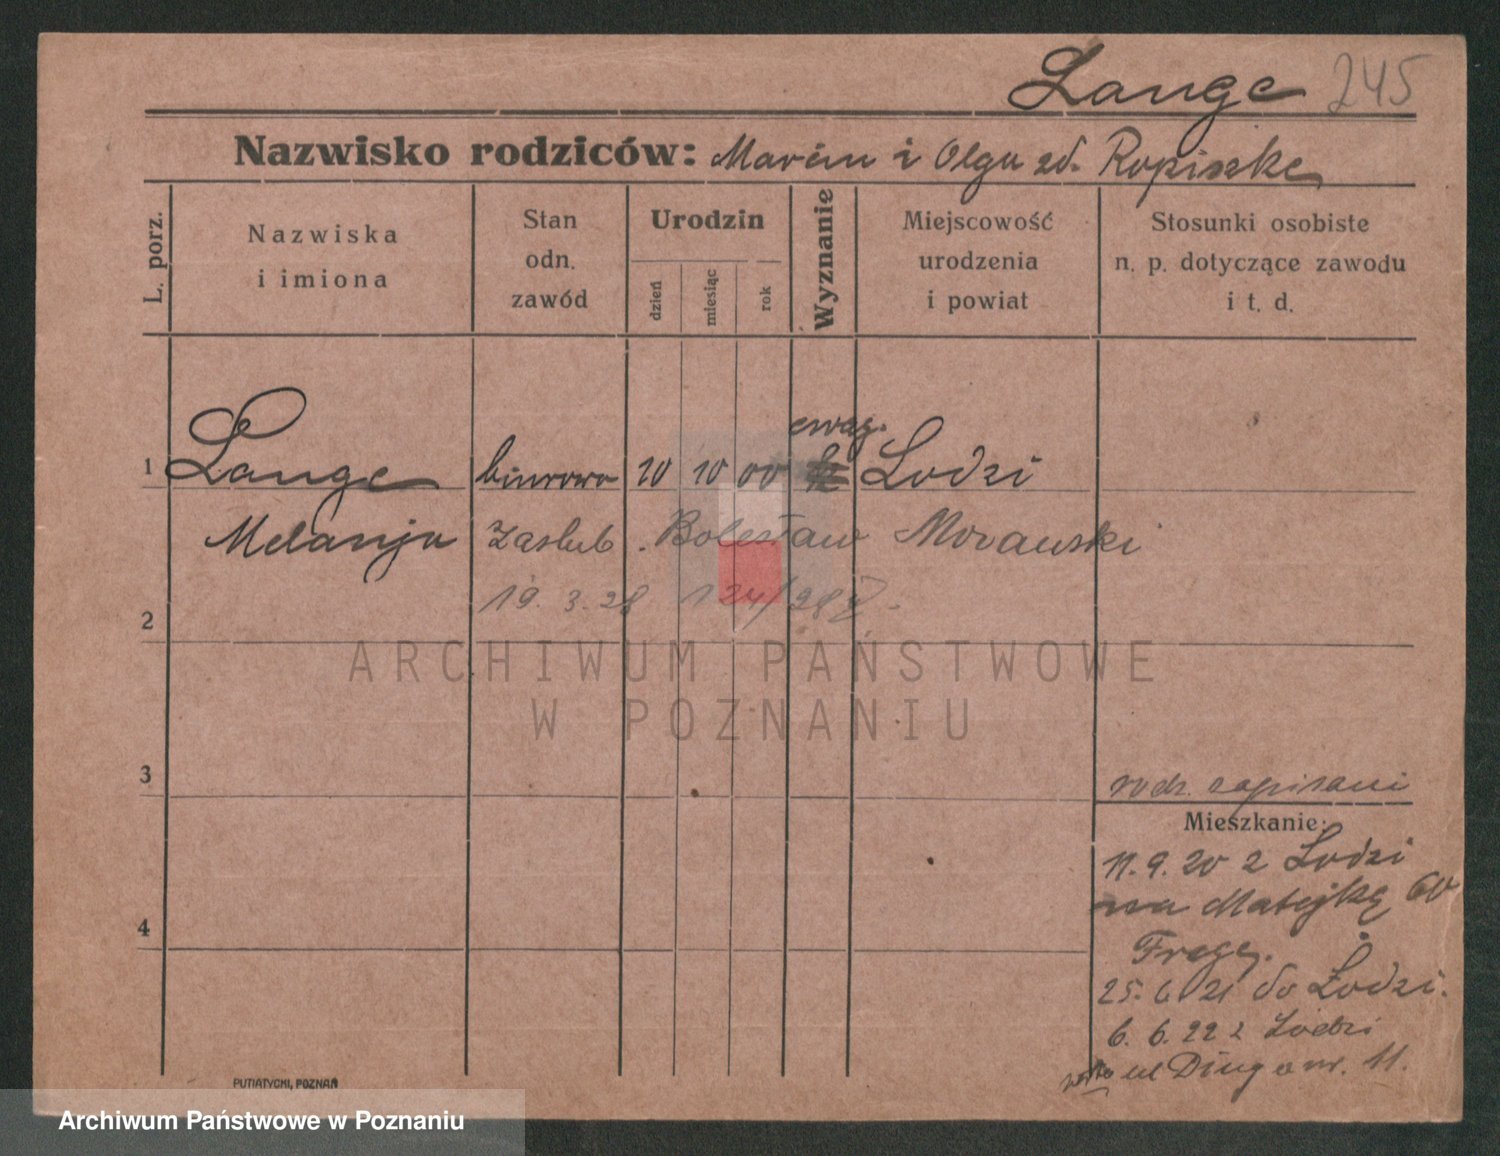 Lange 245
Nazwisko rodziców: Marcin i Olga zd. Ropiszke
L. porz.
Nazwiska
i imiona
Stan
odn.
zawód
Urodzin
dzień
miesiąc
rok
Wyznanie
Miejscowość
urodzenia
i powiat
Stosunki osobiste
n. p. dotyczące zawodu
i t. d.
ewag.
1 Lange biurowa 10 10 00 Lodzi
Melanja Zaslub. Bolesław Morawski
19. 3. 28 124/28
2
ARCHIWUM PAŃSTWOWE
W POZNANIU
3
rodz. zapisani
Mieszkanie:
11. 9. 20 z Lodzi
na Matejkę 60
Frege.
4
25. 6 21 do Łodzi.
6. 6. 22 z Lodzi
ul Długa nr. 11.
PUTIATYCKI, POZNAŃ
Archiwum Państwowe w Poznaniu